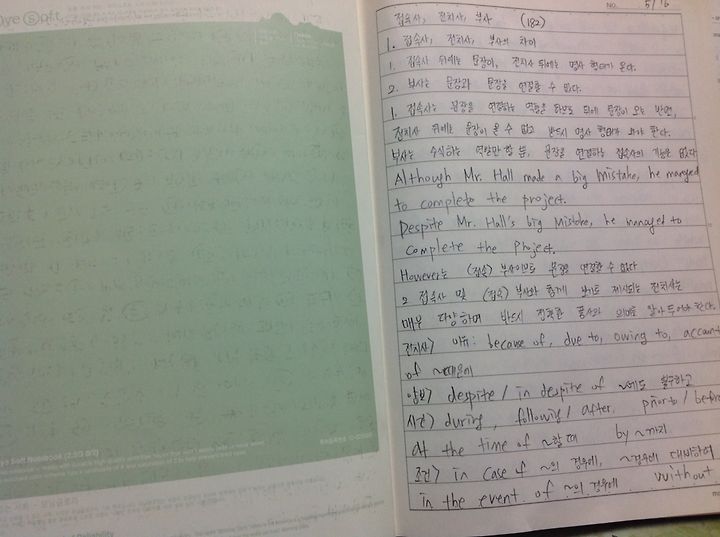 ye soft
NO. 5/16
접속사, 전치사, 부사 (182)
1. 접속사, 전치사, 부사의 차이
1. 접속사 뒤에는 문장이, 전치사 뒤에는 명사 형태가 온다.
2. 부사는 문장과 문장을 연결할 수 없다.
1. 접속사는 문장을 연결하는 역할을 하므로 뒤에 문장이 오는 반면,
전치사 뒤에는 문장이 올 수 없고 반드시 명사 형태가 와야 한다.
부사는 수식하는 역할만 할 뿐, 문장을 연결하는 접속사의 기능은 없다
Although Mr. Hall made a big mistake, he managed
to complete the project.
Despite Mr. Hall's big Mistake, he managed to
complete the Project.
However는 (접속) 부사이므로 문장을 연결할 수 없다
2 접속사 및 (접속) 부사와 함께 보기로 제시되는 전치사는
매우 다양하며 반드시 정확한 품사와 의미를 알아두어야 한다.
전치사> 이유: because of, due to, owing to, account
of ~때문에
양보> despite / in despite of ~에도 불구하고
시간> during, following / after, prior to / before
at the time of ~할 때 by ~까지
조건> in case of ~의 경우에, ~경우에 대비하여
in the event of ~의 경우에 without
e Soft Notebook